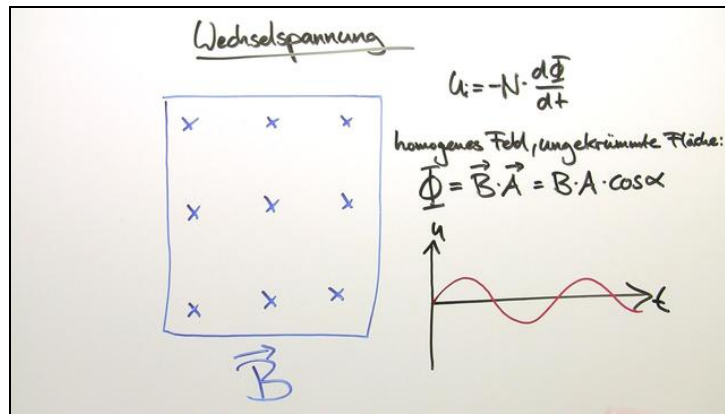 Wechselspannung
x x x
x x x
x x x
B⃗
Ui = -N · dΦ/dt
homogenes Feld, ungekrümmte Fläche:
Φ = B⃗ · A⃗ = B · A · cosα
u
t